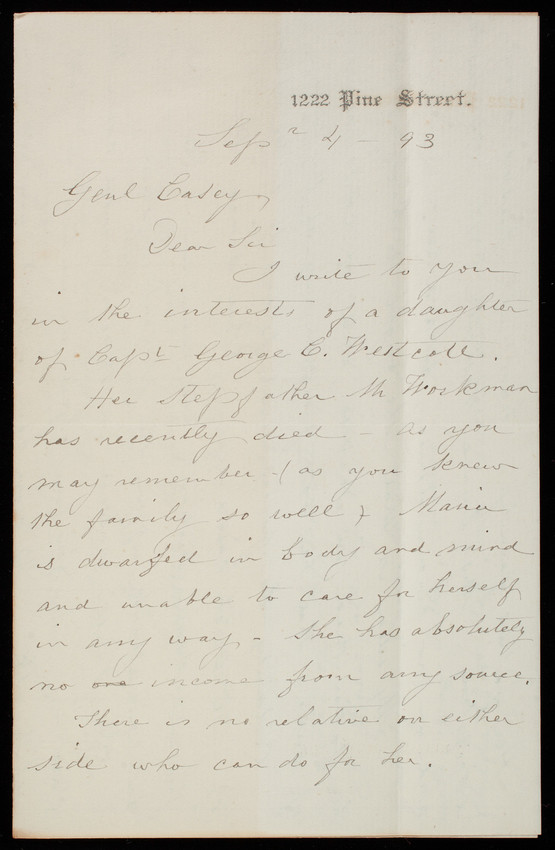 1222 Pine Street.
Sepr 4 - 93
Genl Casey
Dear Sir
I write to you
in the interests of a daughter
of Capt George C. Westcott.
Her stepfather Mr Workman
has recently died - as you
may remember - (as you knew
the family so well) Maria
is dwarfed in body and mind
and unable to care for herself
in any way - She has absolutely
no one income from any source.
There is no relative on either
side who can do for her.